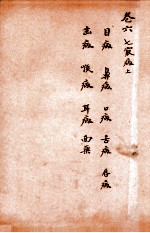 卷六 七竅病上
目病 鼻病 口病 舌病 唇病
齒病 喉病 耳病 面藥